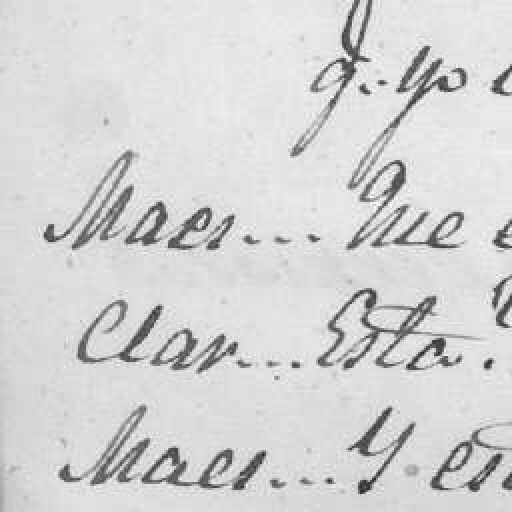 q. yo
Maes... Que e
Clar... Esta.
Maes... Y est